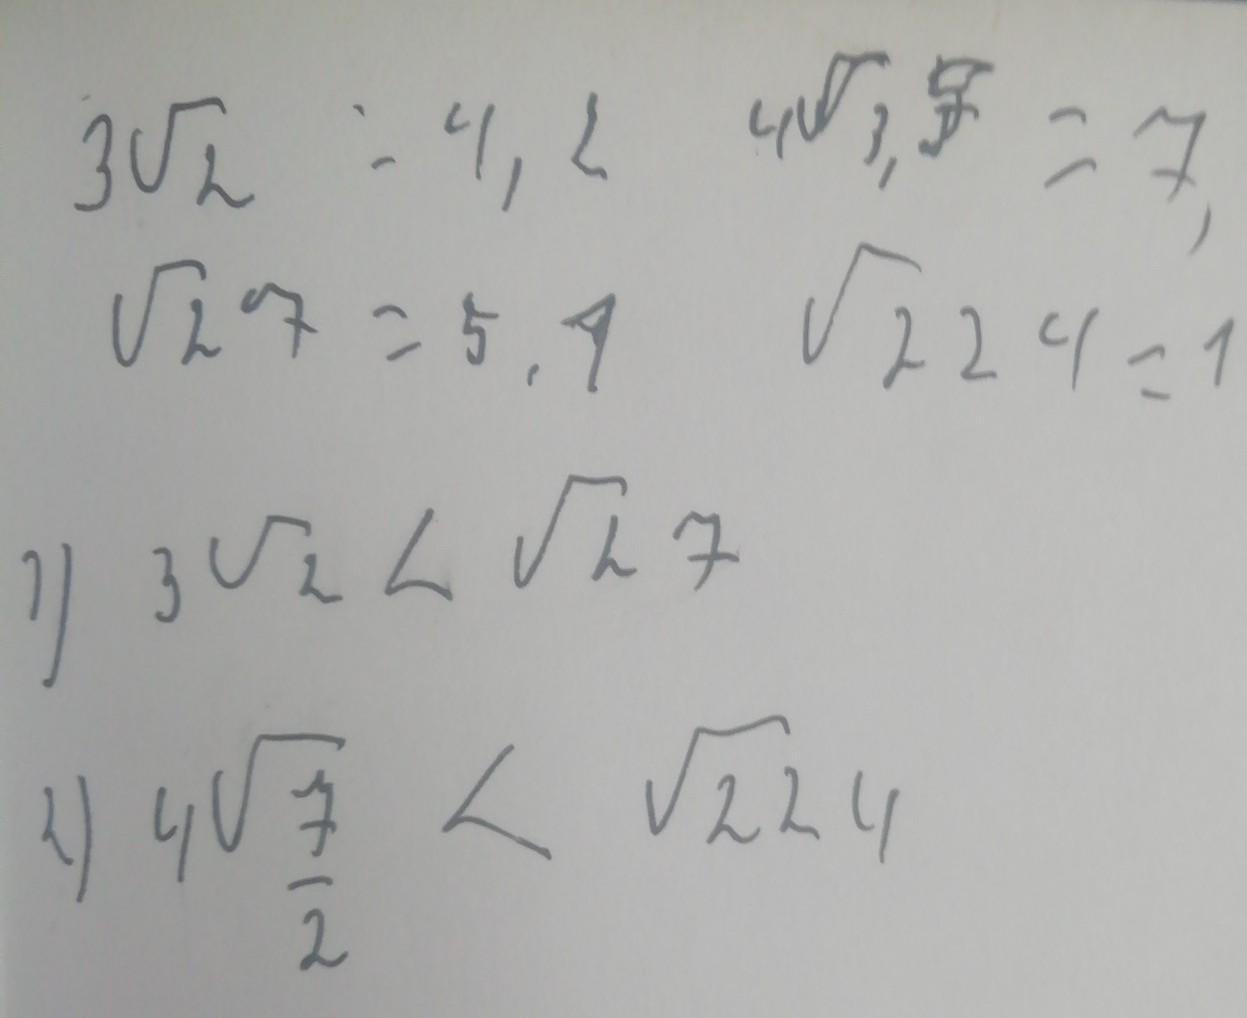 3√2 = 4,2 4√3,5 = 7,
√27 = 5,1 √224 = 1
1) 3√2 < √27
2) 4√7/2 < √224